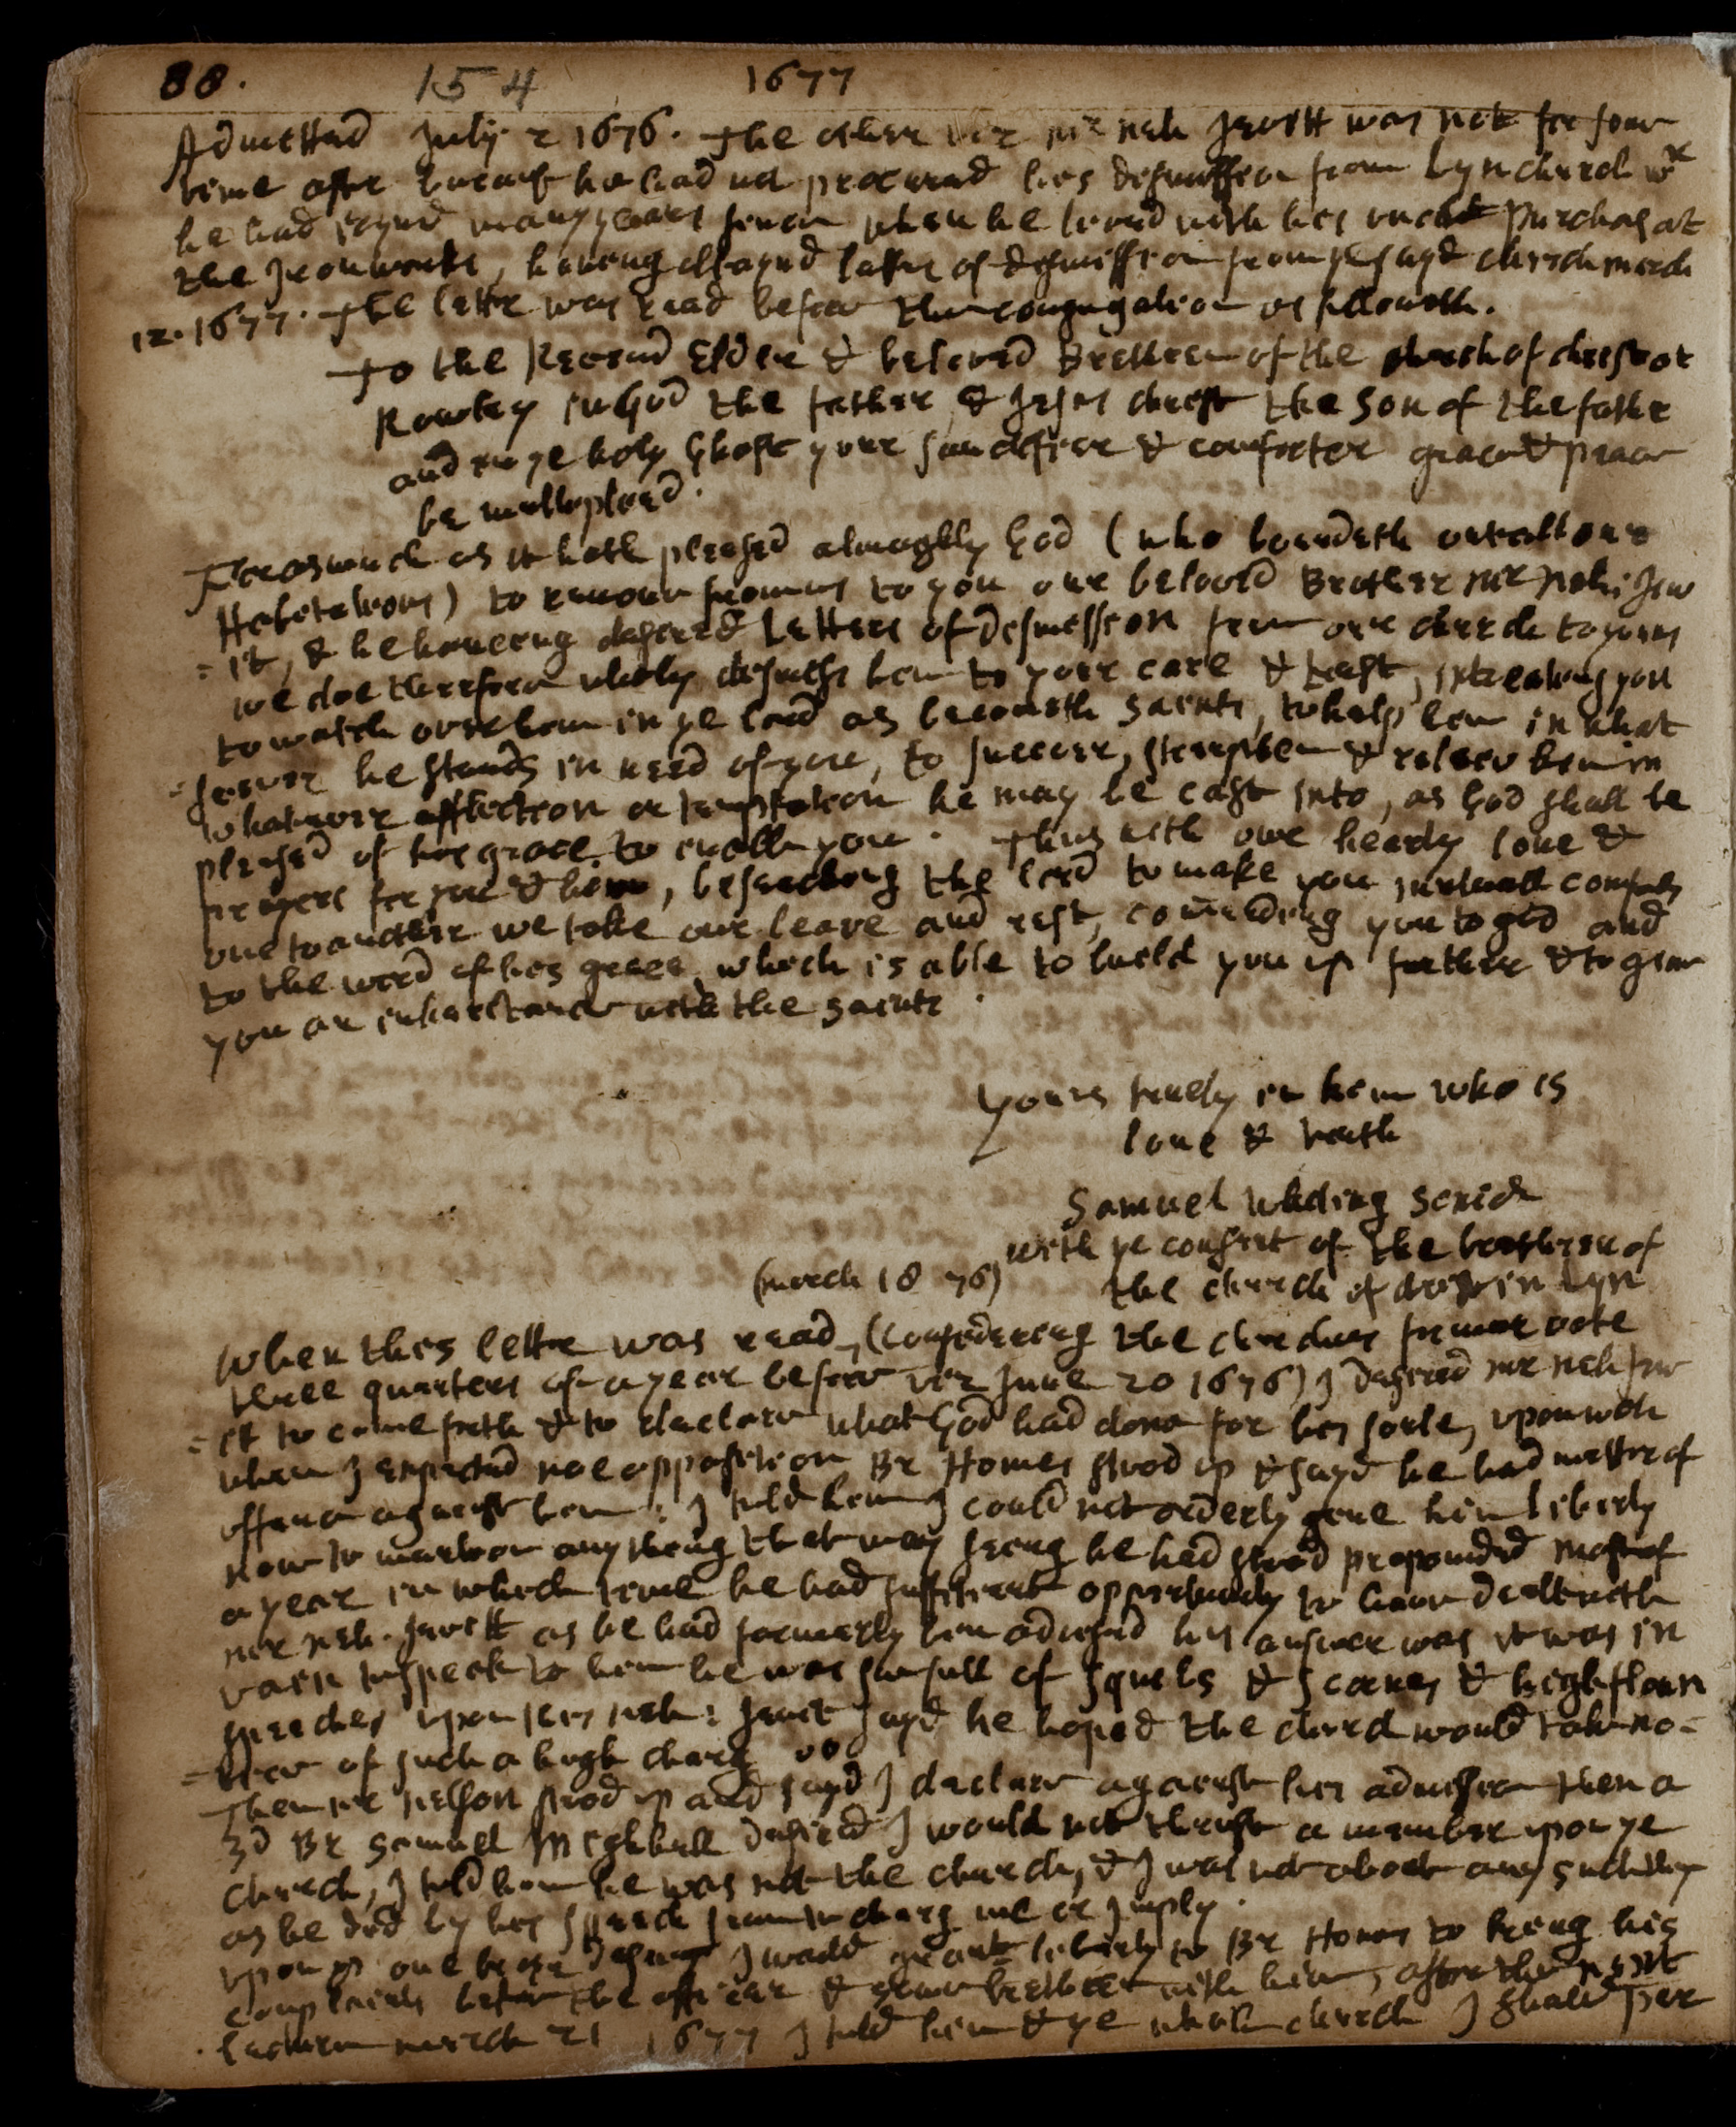 88. 154 1677
Admetted July 2 1676. The other viz mr neh Jewitt was not for some
time after because he had not procured his dismission from Lyn church wch
he had joynd many years since when he lived with his uncle Purchas at
the Ironworks, having obtayned letters of dismission from ye sayd church march
12. 1677. The letter was read before the congregation as followeth.
To the Reverend Elder & beloved Brethren of the church of christ at
Rowley in God the father & Jesus christ the son of the father
and in ye holy Ghost your sanctifier & comforter grace & peace
be multiplied.
Forasmuch as it hath pleased almighty God (who boundeth out all our
Habitations) to remove from us to you our beloved Brother mr nehe: Jew
=it, & he having desired Letters of dismission from our church to yours
we doe therefore wholy dismiss him to your care & trust, intreating you
to watch over him in ye lord as becometh saints, to help him in what
=soever he stands in need of you, to succour, strengthen & releev him in
whatever affliction or temptation he may be cast into, as God shall be
pleased of his grace to enable you. Thus with our hearty love &
prayers for you & him, beseeching the lord to make you mutuall comforts
one to another we take our leave and rest, comending you to god and
to the word of his grace which is able to build you up further & to give
you an inheritance with the saints.
Yours truely in him who is
love & truth
Samuel Whiting Senior
with ye consent of the brethren of
(march 18 76) the church of christ in Lyn
When this letter was read, (considering the churches former vote
three quarters of a year before viz June 20 1676) I desired mr neh Jew
=it to come forth & to declare what God had done for his soule, upon wch
when I expected noe opposition Br Homes stood up & sayd he had matter of
offence against him: I told him I could not orderly give him liberty
now to mention any thing that way seeing he had stood propounded most of
a year in which time he had sufficient opportunity to have dealt with
mr neh. Jewitt as he had formerly him advised his answer was it was in
vain to speak to him he was so full of squibs & scornes & highflown
speeches upon this neh: Jewit sayd he hoped the church would take no=
=tice of such a high charg
Then mr nelson stood up and sayd I declare against his admission then a
3d Br Samuel Mighill desired I would not thrust a member upon ye
church, I told him he was not the church, & I was not about any such thing
as he did by his speech seem to charg me or imply.
upon ys one broth desired I would grant liberty to Br Homes to bring his
complaints before the officer & some brethren with him, after the next
lecture march 21 1677 I told him & ye whole church I should per